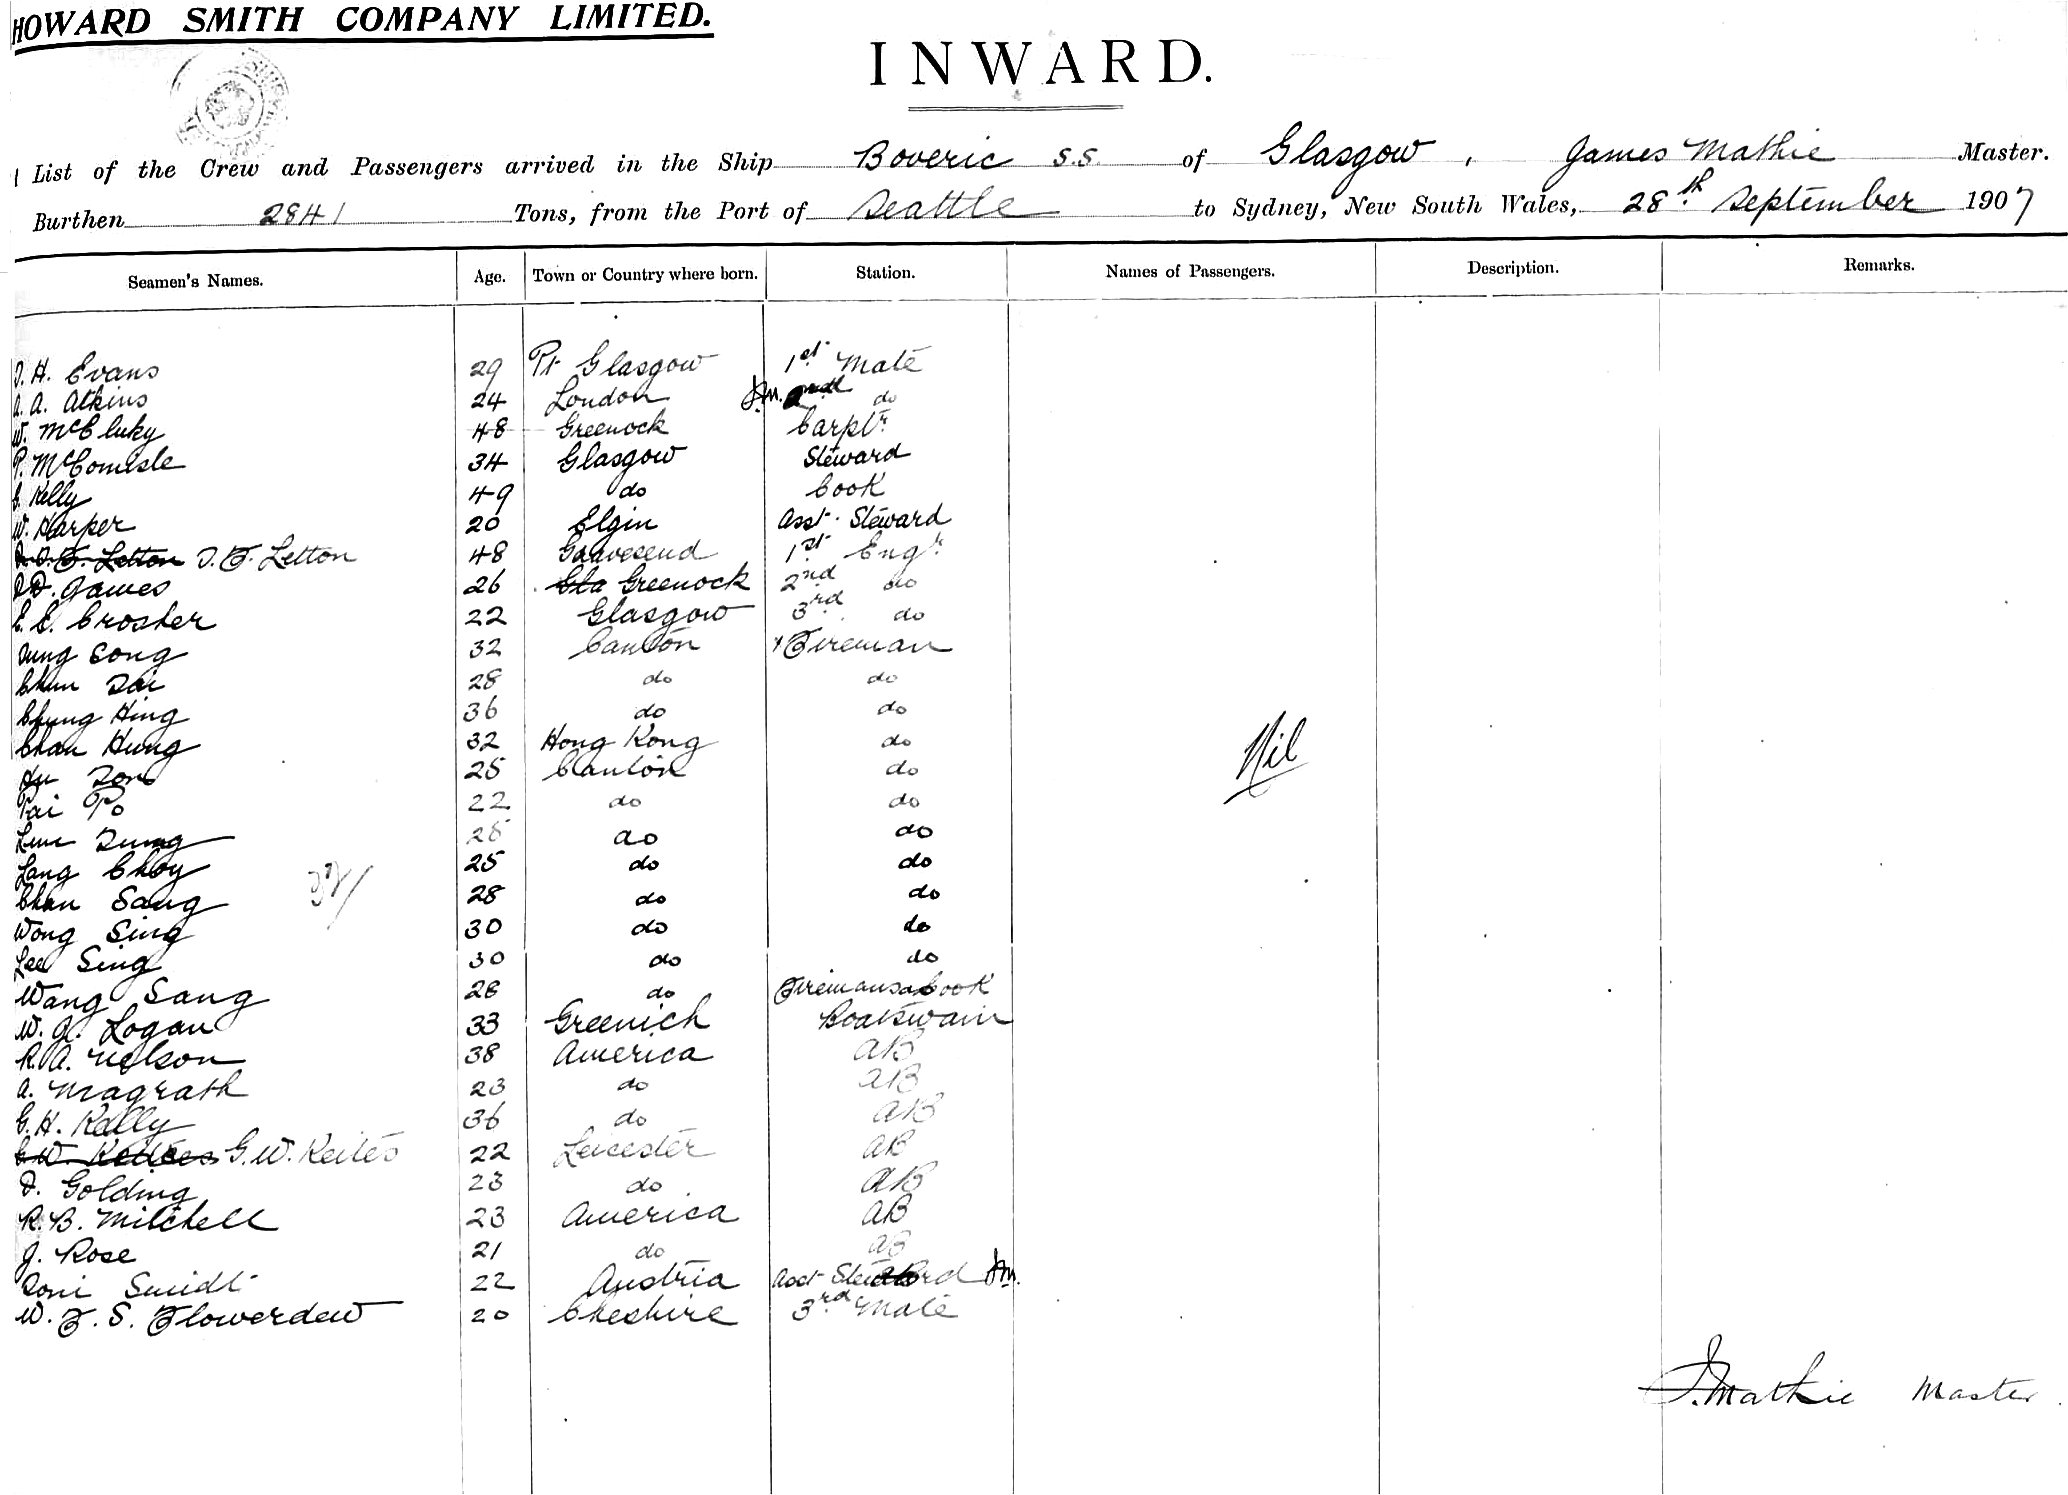 HOWARD SMITH COMPANY LIMITED.
INWARD.
List of the Crew and Passengers arrived in the Ship Boveric S.S. of Glasgow, James Mathie Master.
Burthen 2841 Tons, from the Port of Seattle to Sydney, New South Wales, 28th September 1907
Seamen's Names. Age. Town or Country where born. Station. Names of Passengers. Description. Remarks.
H. Evans 29 Pt Glasgow 1st Mate
A. A. Atkins 24 London J.M. 2nd do
W. McCluky 48 Greenock Carptr
P. McComisle 34 Glasgow Steward
Kelly 49 do Cook
W. Harper 20 Elgin Asst. Steward
Letton J. F. Letton 48 Gravesend 1st Engr
James 26 Gla Greenock 2nd do
E. E. Crosher 22 Glasgow 3rd do
Tung Song 32 Canton Fireman
Chun Tai 28 do do
Chung Hing 36 do do
Chan Hung 32 Hong Kong do
Hu Ton 25 Canton do
Pai Po 22 do do
Lum Tung 25 do do
Lang Choy 25 do do
Chan Sang 28 do do
Wong Sing 30 do do
Lee Sing 30 do do
Wang Sang 28 do Firemans Cook
W. J. Logan 33 Greenich Boatswain
R. A. Nelson 38 America AB
A. Magrath 23 do AB
G. H. Kelly 36 do AB
G. W. Keites 22 Leicester AB
J. Golding 23 do AB
R. B. Mitchell 23 America AB
J. Rose 21 do AB
Toni Smidt 22 Austria Asst Steward J.M.
W. F. S. Flowerdew 20 Cheshire 3rd Mate
Nil
J. Mathie Master